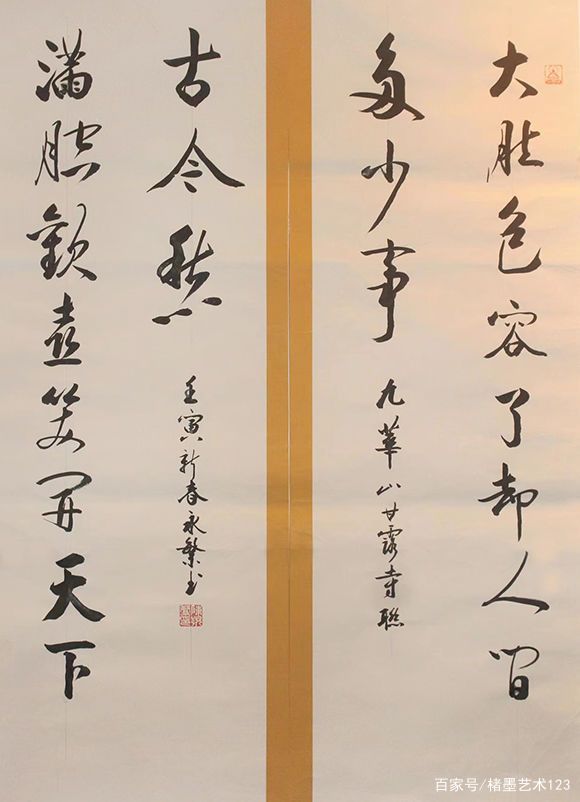 大肚包容了却人間
多少事
九華山甘露寺聯
滿腔歡喜笑開天下
古今愁
壬寅新春永繁书
百家号/楮墨艺术123